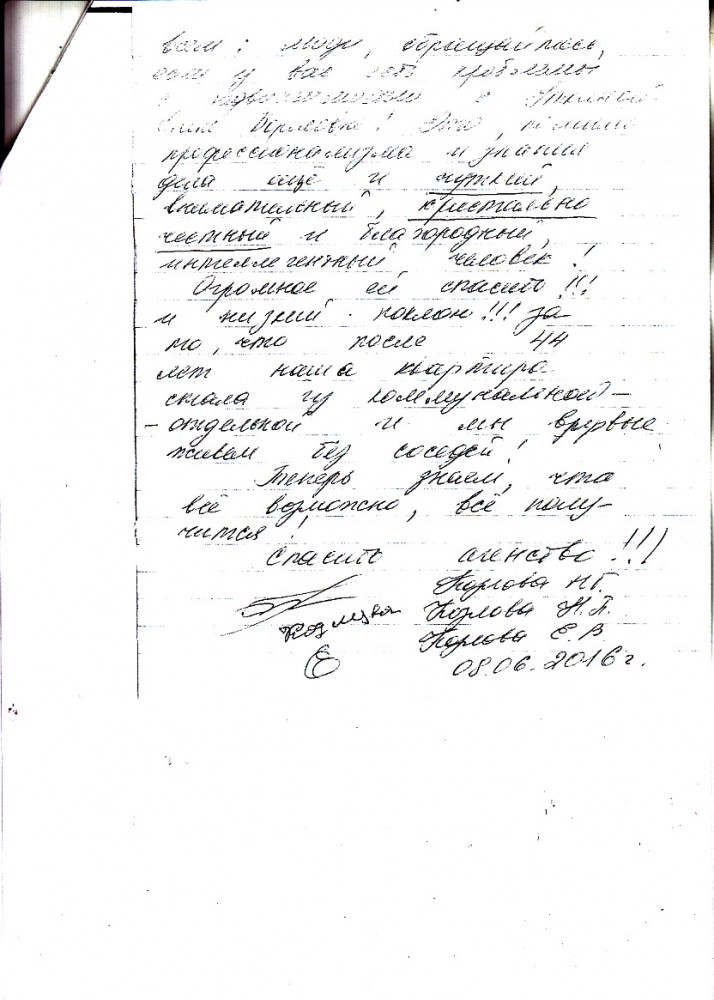 всем: люди, обращайтесь,
если у вас есть проблемы
с недвижимостью к
Это, помимо
профессионализма и знания
дела ещё и чуткий,
внимательный, кристально
честный и благородный,
интеллегентный человек!
Огромное ей спасибо!!!
и низкий поклон!!! за
то, что после 44
лет наша квартира
стала из коммунальной -
- отдельной и мы впервые
живем без соседей!
Теперь знаем, что
всё возможно, всё полу-
чится!
Спасибо агенство!!!
Н.Г.
Козлова Н.П.
Е.В.
08.06.2016 г.